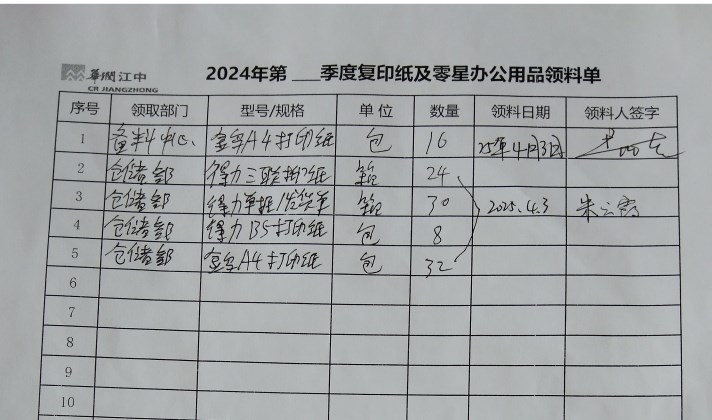 华润江中
CR JIANGZHONG
2024年第___季度复印纸及零星办公用品领料单
序号 领取部门 型号/规格 单位 数量 领料日期 领料人签字
1 备料中心 A4打印纸 包 16 25年4月3日
2 仓储部 得力三联打印纸 箱 24
3 仓储部 得力单据/发货单 箱 30 2025.4.3 朱云霞
4 仓储部 得力B5打印纸 包 8
5 仓储部 A4打印纸 包 32
6
7
8
9
10